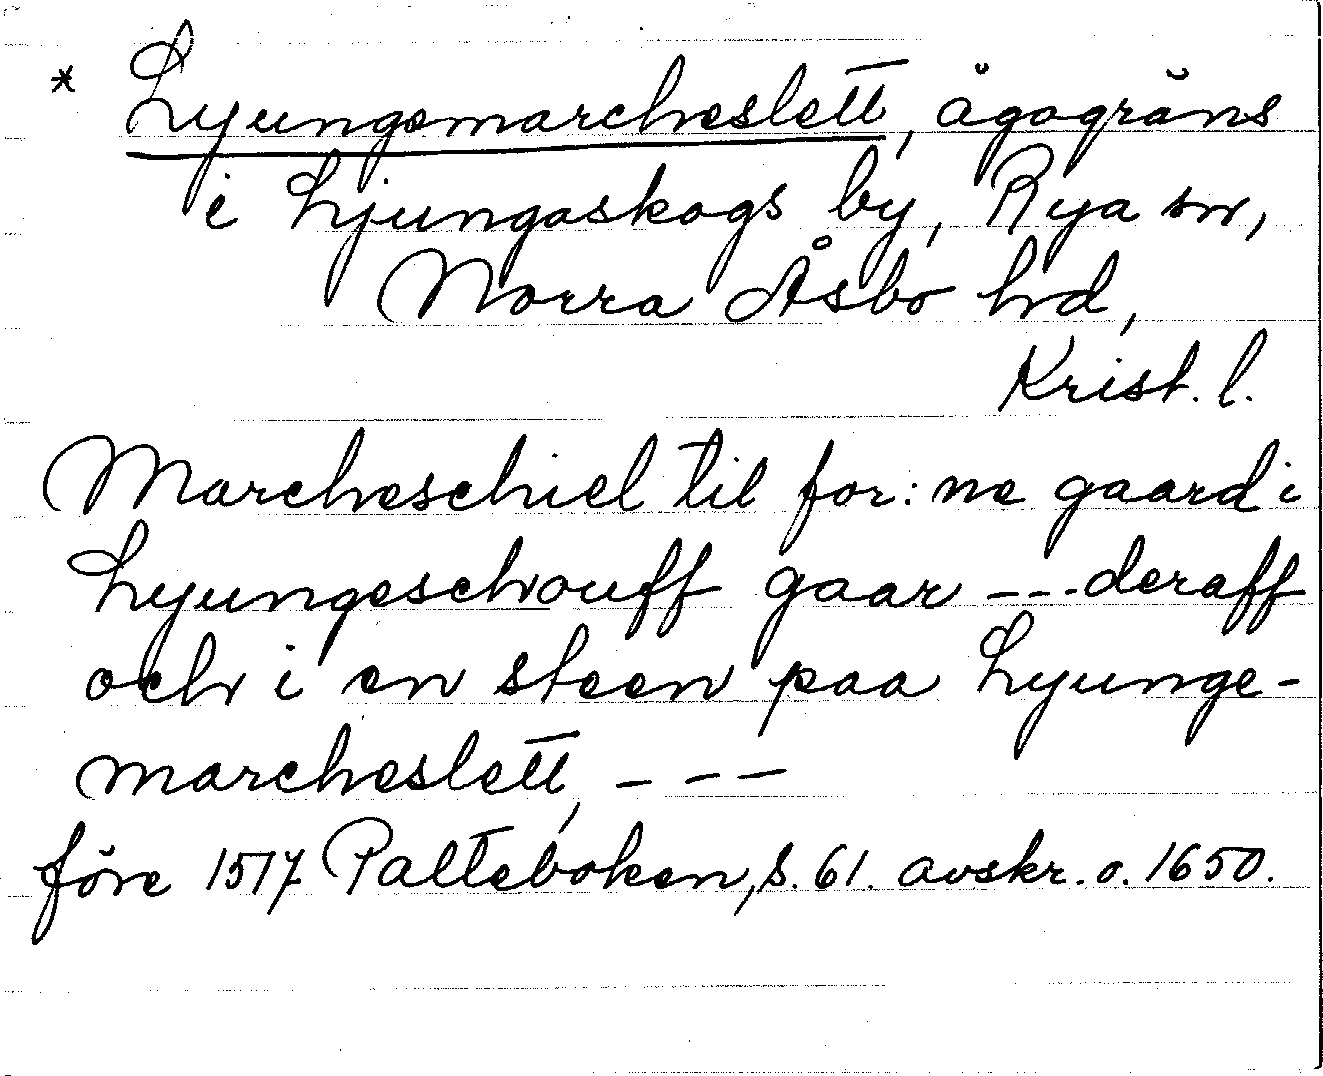 * Lyungemarcheslett, ägogräns
i Ljungaskogs by, Rya sn,
Norra Åsbo hd,
Krist. l.
Marcheschiel til for: ne gaard i
Lyungeschouff gaar --- deraff
och i en steen paa Lyunge-
marcheslett, ---
före 1517 Palteboken, s. 61. avskr. o. 1650.